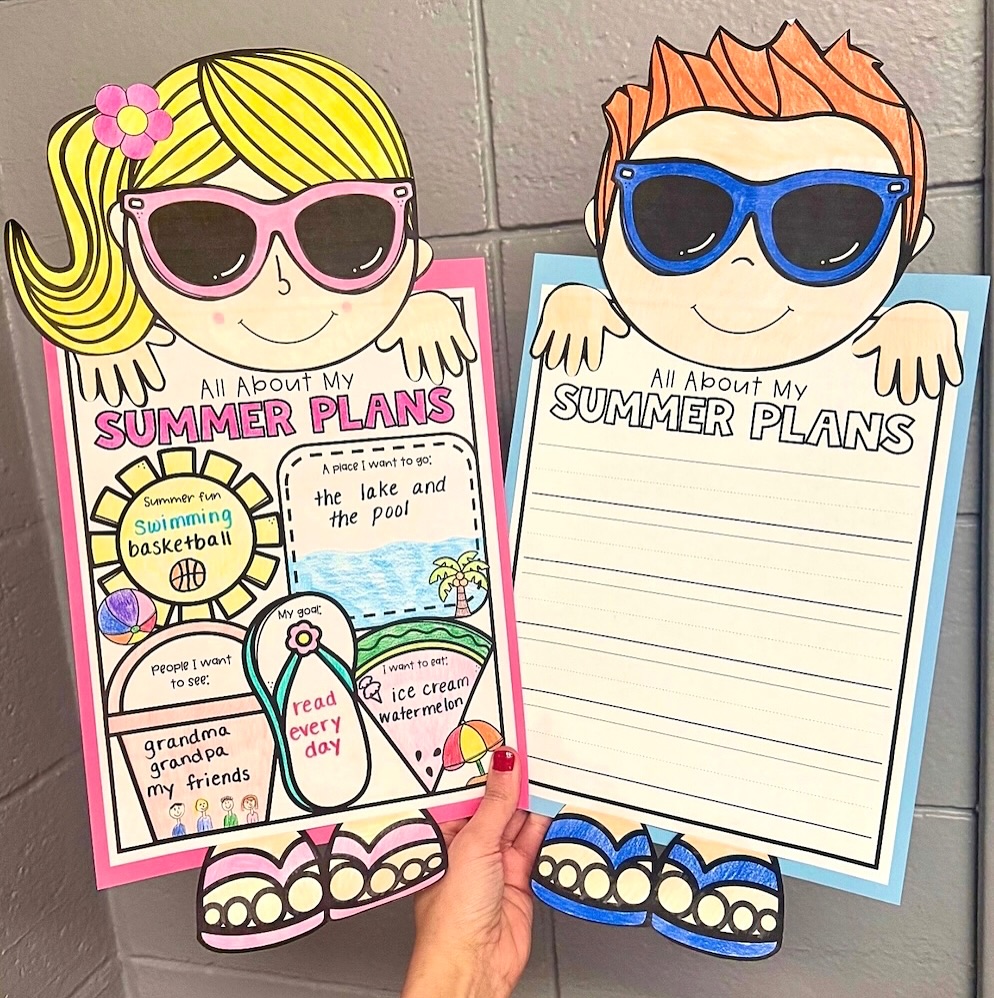 All About My
SUMMER PLANS
Summer fun
Swimming
basketball
A place I want to go:
the lake and
the pool
People I want
to see:
grandma
grandpa
my friends
My goal:
read
every
day
I want to eat:
ice cream
watermelon
All About My
SUMMER PLANS